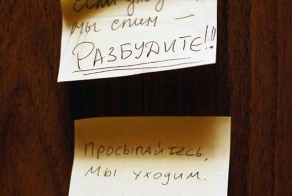 если ухо
мы спим —
РАЗБУДИТЕ!!
Просыпайтесь,
мы уходим.